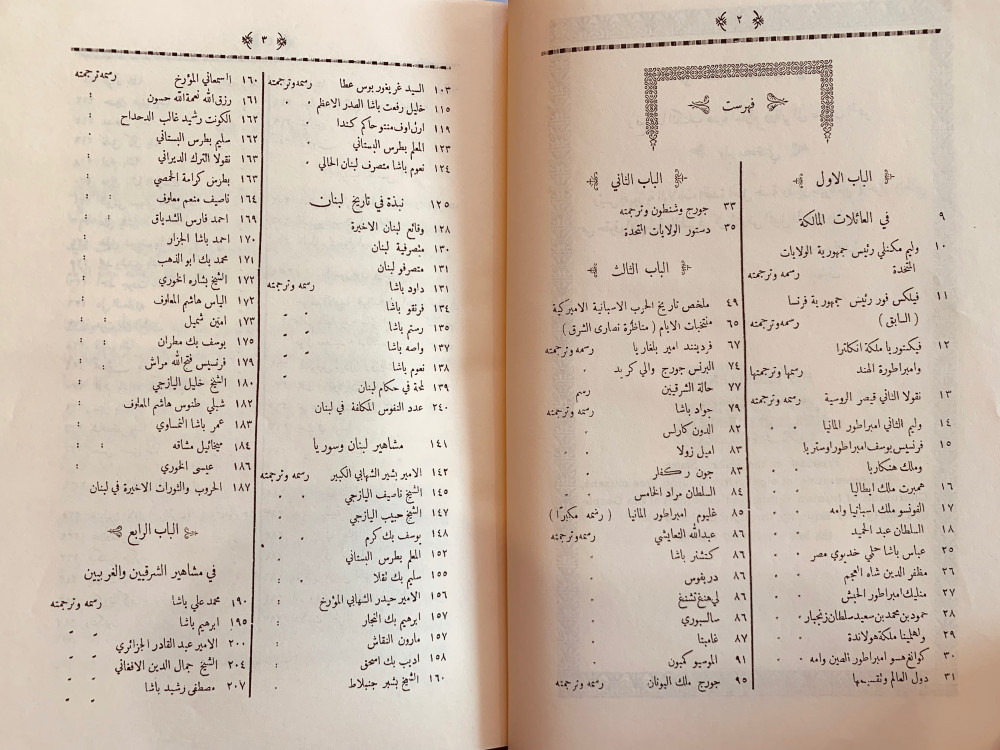 ٢
فهرست
الباب الاول
٩ في العائلات المالكة
١٠ وليم مكنلي رئيس جمهورية الولايات
المتحدة رسمه وترجمته
١١ فيلكس فور رئيس جمهورية فرنسا
( السابق ) رسمه وترجمته
١٢ فيكتوريا ملكة انكلترا
وامبراطورة الهند رسمها وترجمتها
١٣ نقولا الثاني قيصر الروسية رسمه وترجمته
١٤ وليم الثاني امبراطور المانيا " "
١٥ فرنسيس يوسف امبراطور اوستريا
وملك هنكاريا " "
١٦ همبرت ملك ايطاليا " "
١٧ الفونسو ملك اسبانيا وامه
١٨ السلطان عبد الحميد " "
٢٥ عباس باشا حلمي خديوي مصر " "
٢٦ مظفر الدين شاه العجم " "
٢٧ منليك امبراطور الحبش " "
٢٨ حمود بن محمد بن سعيد سلطان زنجبار " "
٢٩ ولهلمينا ملكة هولاندة " "
٣٠ كوانغ هسو امبراطور الصين وامه " "
٣١ دول العالم وتقسيمها
الباب الثاني
٣٣ جورج وشنطون وترجمته
٣٥ دستور الولايات المتحدة
الباب الثالث
٤٩ ملخص تاريخ الحرب الاسبانية الاميركية
٦٥ منتخبات الايام ( مناظرة نصارى الشرق )
٦٧ فردينند امير بلغاريا رسمه وترجمته
٧٤ البرنس جورج والي كريد "
٧٧ حالة الشرقيين رسم
٧٩ جواد باشا رسمه وترجمته
٨٢ الدون كارلس "
٨٣ اميل زولا "
٨٣ جون ركفلر "
٨٤ السلطان مراد الخامس "
٨٥ غليوم امبراطور المانيا ( رسمه مكبرًا )
٨٦ عبدالله التعايشي رسمه وترجمته
٨٦ كتشنر باشا "
٨٦ دريفوس "
٨٦ لي هنغ تشنغ "
٨٦ سالسبوري "
٨٧ غامبتا "
٩١ الموسيو كمبون "
٩٥ جورج ملك اليونان رسمه وترجمته
٣
١٠٣ السيد غريغور بوس عطا رسمه وترجمته
١١٥ خليل رفعت باشا الصدر الاعظم " "
١١٩ ارل اوف منتو حاكم كندا " "
١٢٣ المعلم بطرس البستاني
١٢٤ نعوم باشا متصرف لبنان الحالي
١٢٥ نبذة في تاريخ لبنان
١٢٨ وقائع لبنان الاخيرة
١٣٠ متصرفية لبنان
١٣١ متصرفو لبنان
١٣١ داود باشا رسمه وترجمته
١٣٤ فرنقو باشا " "
١٣٥ رستم باشا " "
١٣٧ واصه باشا " "
١٣٨ نعوم باشا
١٣٩ لمحة في حكام لبنان
٢٤٠ عدد النفوس المكلفة في لبنان
١٤١ مشاهير لبنان وسوريا
١٤٢ الامير بشير الشهابي الكبير رسمه وترجمته
١٤٥ الشيخ ناصيف اليازجي " "
١٤٧ الشيخ حبيب اليازجي
١٤٨ يوسف بك كرم " "
١٥٢ المعلم بطرس البستاني
١٥٥ سليم بك تقلا " "
١٥٦ الامير حيدر الشهابي المؤرخ :
١٥٧ ابرهيم بك النجار :
١٥٧ مارون النقاش :
١٥٨ اديب بك اسحق :
١٦٠ الشيخ بشير جنبلاط :
١٦٠ السمعاني المؤرخ رسمه وترجمته
١٦١ رزق الله نعمة الله حسون "
١٦٢ الكونت رشيد غالب الدحداح
١٦٢ سليم بطرس البستاني :
١٦٣ نقولا الترك الديراني :
١٦٣ بطرس كرامة الحمصي
١٦٤ ناصيف منعم معلوف : :
١٦٩ احمد فارس الشدياق : :
١٧٠ احمد باشا الجزار :
١٧١ محمد بك ابو الذهب :
١٧٢ الشيخ بشاره الخوري :
١٧٢ الياس هاشم المعلوف :
١٧٣ امين شميل :
١٧٥ يوسف بك مطران : :
١٧٩ فرنسيس فتح الله مراش :
١٨٠ الشيخ خليل اليازجي :
١٨٢ شبلي طنوس هاشم المعلوف :
١٨٣ عمر باشا النمساوي :
١٨٤ ميخائيل مشاقه : :
١٨٦ عيسى الخوري :
١٨٧ الحروب والثورات الاخيرة في لبنان
الباب الرابع
في مشاهير الشرقيين والغربيين
١٩٠ محمد علي باشا رسمه وترجمته
١٩٥ ابرهيم باشا " "
٢٠٠ الامير عبد القادر الجزائري
٢٠٤ الشيخ جمال الدين الافغاني " "
٢٠٧ مصطفى رشيد باشا " "